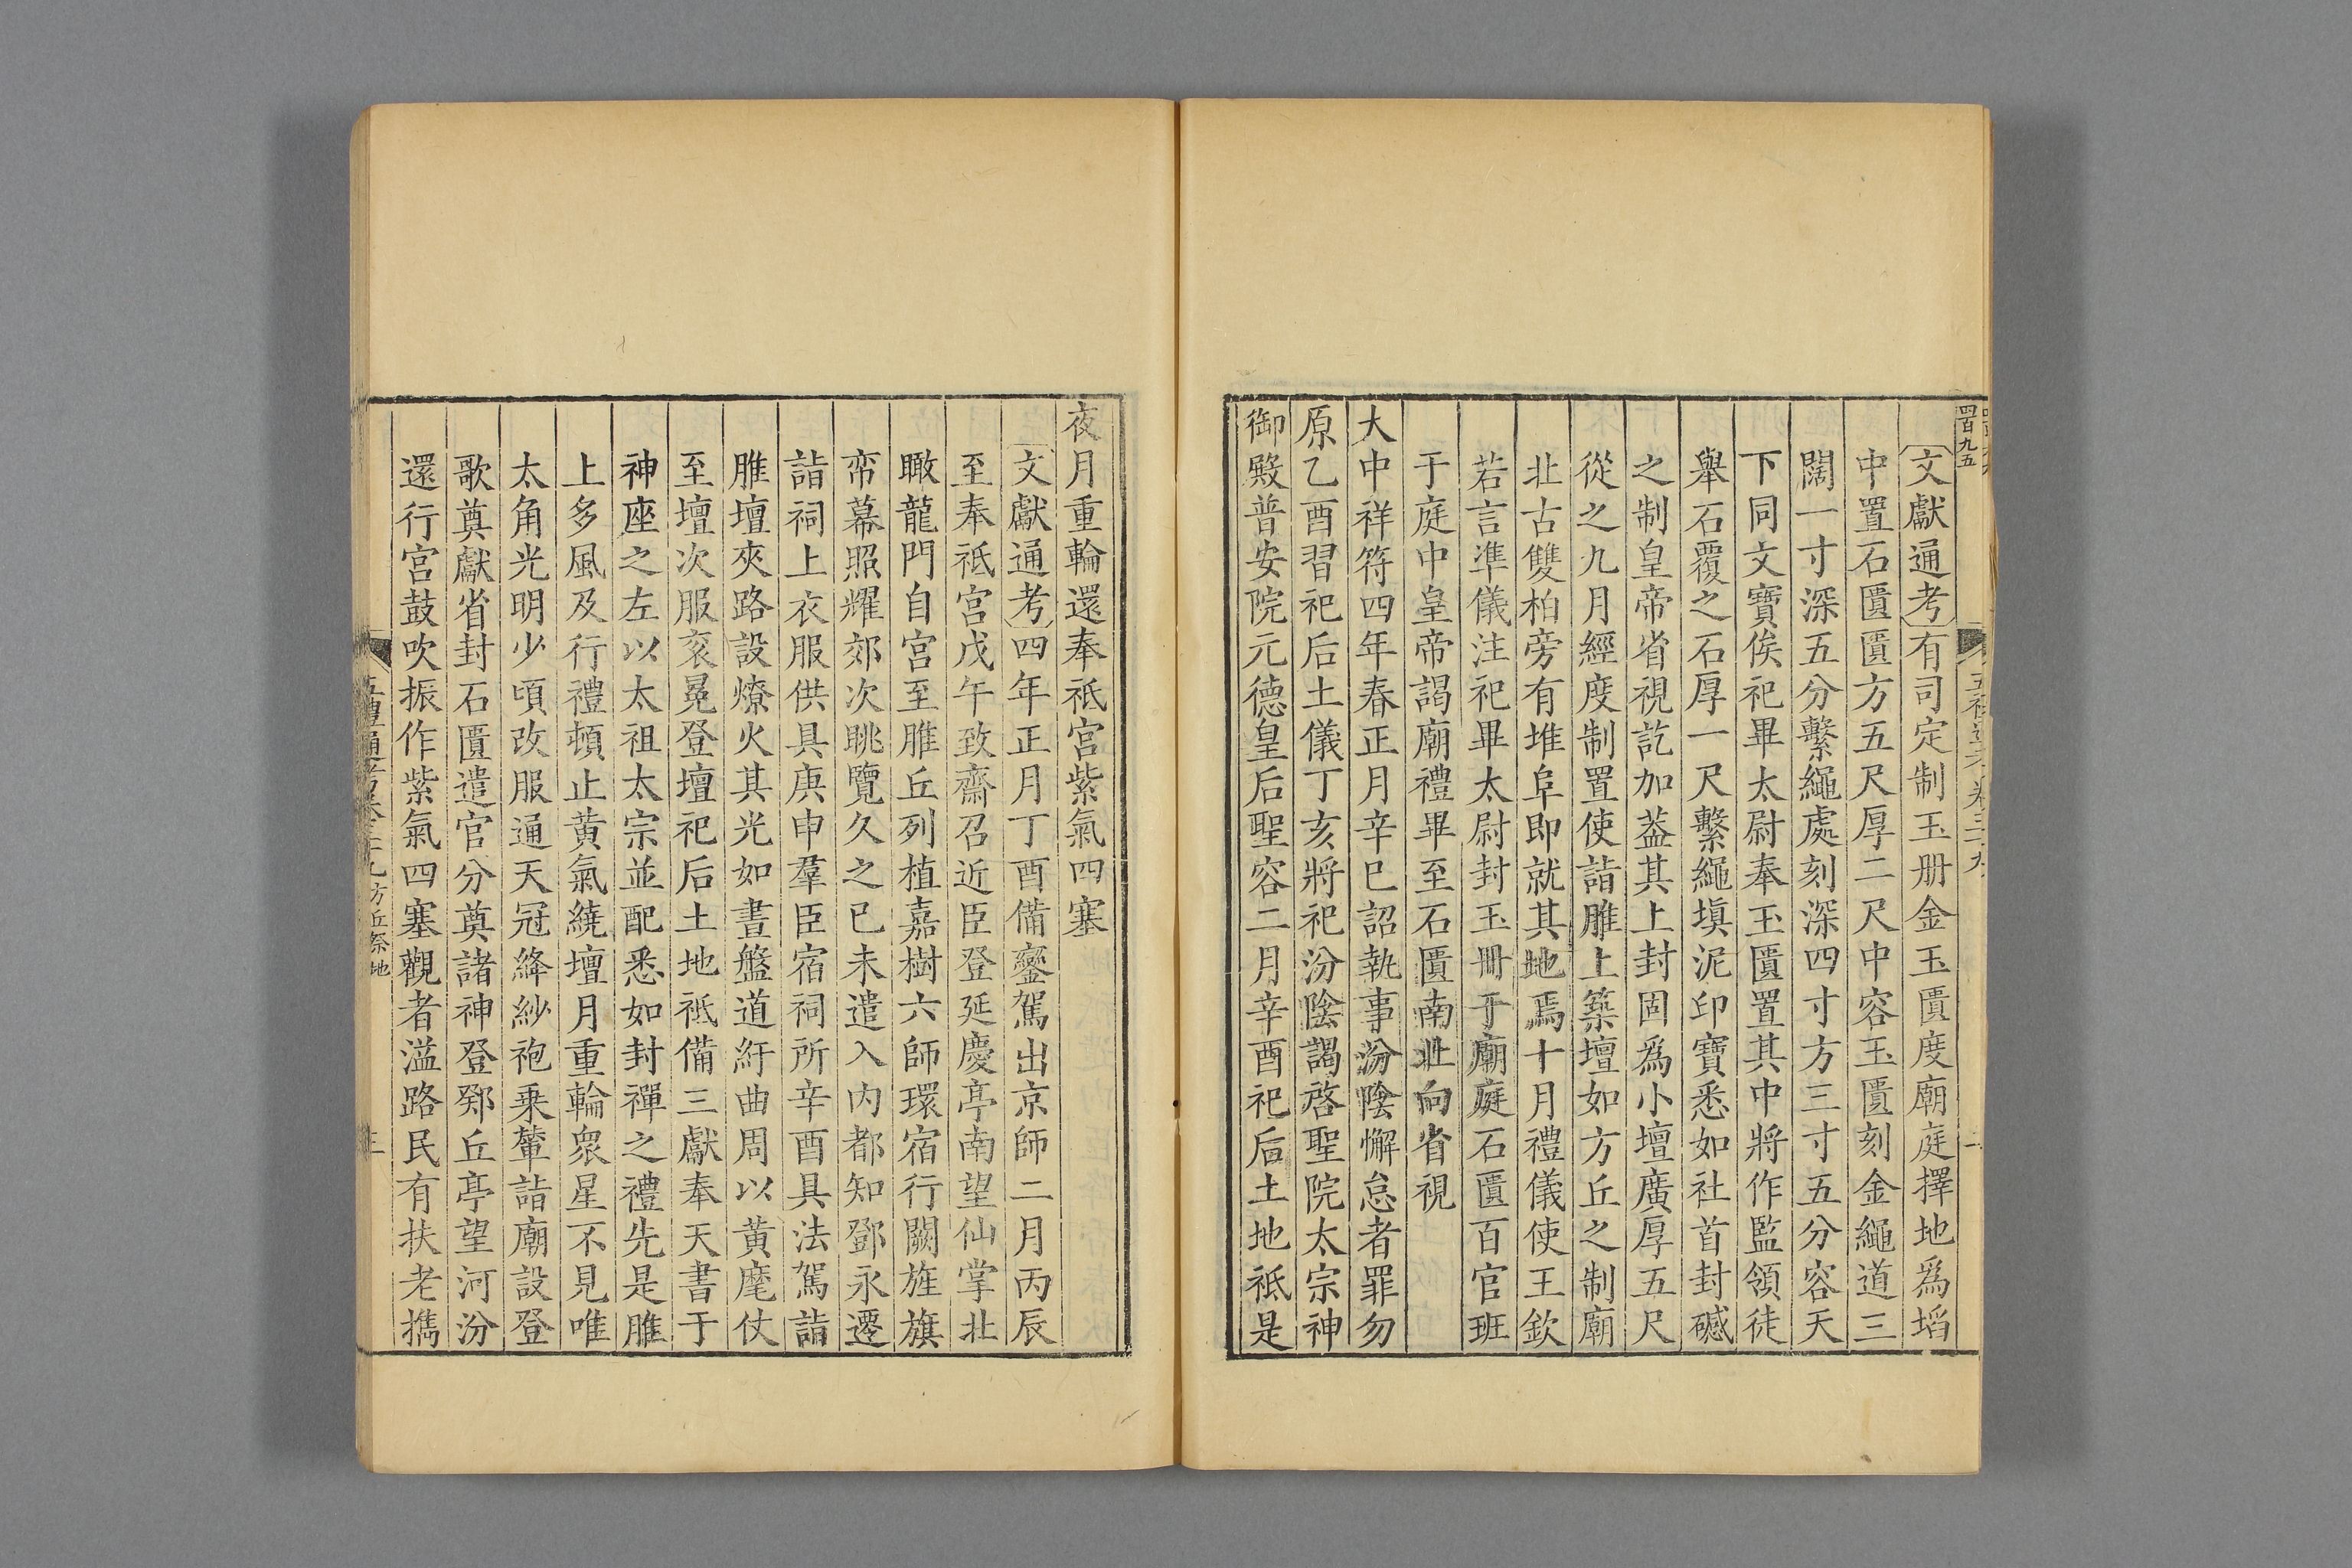 四百九五
文獻通考有司定制玉册金玉匱度廟庭擇地爲埳
中置石匱匱方五尺厚二尺中容玉匱刻金繩道三
闊一寸深五分繫繩處刻深四寸方三寸五分容天
下同文寶俟祀畢太尉奉玉匱置其中將作監領徒
舉石覆之石厚一尺繫繩塡泥印寶悉如社首封䃭
之制皇帝省視訖加蓋其上封固爲小壇廣厚五尺
從之九月經度制置使詣脽上築壇如方丘之制廟
北古雙柏旁有堆阜即就其地焉十月禮儀使王欽
若言準儀注祀畢太尉封玉冊于廟庭石匱百官班
于庭中皇帝謁廟禮畢至石匱南北向省視
大中祥符四年春正月辛巳詔執事汾陰懈怠者罪勿
原乙酉習祀后土儀丁亥將祀汾陰謁啓聖院太宗神
御殿普安院元德皇后聖容二月辛酉祀后土地祇是
夜月重輪還奉祇宮紫氣四塞
文獻通考四年正月丁酉備鑾駕出京師二月丙辰
至奉祇宮戊午致齋召近臣登延慶亭南望仙掌北
瞰龍門自宮至脽丘列植嘉樹六師環宿行闕旌旗
帟幕照耀郊次眺覽久之已未遣入内都知鄧永遷
詣祠上衣服供具庚申羣臣宿祠所辛酉具法駕詣
脽壇夾路設燎火其光如晝盤道紆曲周以黃麾仗
至壇次服衮冕登壇祀后土地祇備三獻奉天書于
神座之左以太祖太宗並配悉如封禪之禮先是脽
上多風及行禮頓止黃氣繞壇月重輪衆星不見唯
太角光明少頃改服通天冠絳紗袍乗輦詣廟設登
歌奠獻省封石匱遣官分奠諸神登鄈丘亭望河汾
還行宮鼓吹振作紫氣四塞觀者溢路民有扶老㩦
方丘祭地